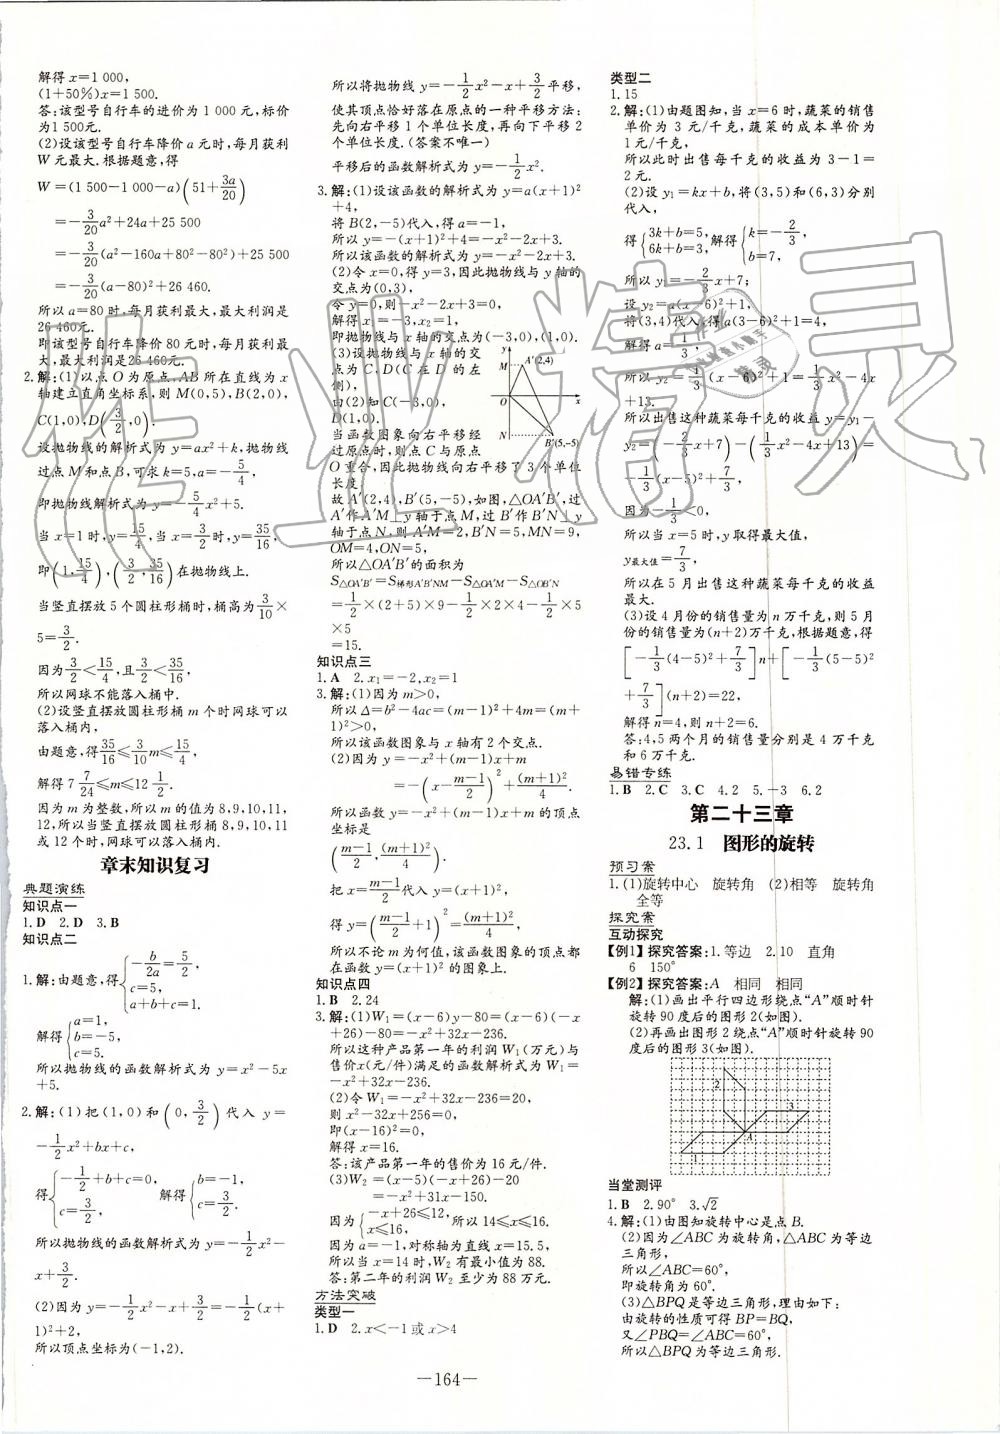 解得x=1 000,
(1+50%)x=1 500.
答:该型号自行车的进价为1 000元,标价
为1 500元.
(2)设该型号自行车降价a元时,每月获利
W元最大.根据题意,得
W=(1 500-1 000-a)(51+3a/20)
=-3/20a²+24a+25 500
=-3/20(a²-160a+80²-80²)+25 500
=-3/20(a-80)²+26 460.
所以a=80时,每月获利最大,最大利润是
26 460元.
即该型号自行车降价80元时,每月获利最
大,最大利润是26 460元.
2.解:(1)以点O为原点,AB所在直线为x
轴建立直角坐标系,则M(0,5),B(2,0),
C(1,0),D(3/2,0).
设抛物线的解析式为y=ax²+k,抛物线
过点M和点B,可求k=5,a=-5/4,
即抛物线解析式为y=-5/4x²+5.
当x=1时,y=15/4,当x=3/2时,y=35/16,
即(1,15/4),(3/2,35/16)在抛物线上.
当竖直摆放5个圆柱形桶时,桶高为3/10×
5=3/2.
因为3/2<15/4,且3/2<35/16,
所以网球不能落入桶中.
(2)设竖直摆放圆柱形桶m个时网球可以
落入桶内,
由题意,得35/16≤3/10m≤15/4,
解得7 7/24≤m≤12 1/2.
因为m为整数,所以m的值为8,9,10,11,
12,所以当竖直摆放圆柱形桶8,9,10,11
或12个时,网球可以落入桶内.
章末知识复习
典题演练
知识点一
1.D 2.D 3.B
知识点二
1.解:由题意,得{-b/2a=5/2,
c=5,
a+b+c=1.
解得{a=1,
b=-5,
c=5.
所以抛物线的函数解析式为y=x²-5x
+5.
2.解:(1)把(1,0)和(0,3/2)代入y=
-1/2x²+bx+c,
得{-1/2+b+c=0,
c=3/2,
解得{b=-1,
c=3/2.
所以抛物线的函数解析式为y=-1/2x²-
x+3/2.
(2)因为y=-1/2x²-x+3/2=-1/2(x+
1)²+2,
所以顶点坐标为(-1,2).
所以将抛物线y=-1/2x²-x+3/2平移,
使其顶点恰好落在原点的一种平移方法:
先向右平移1个单位长度,再向下平移2
个单位长度.(答案不唯一)
平移后的函数解析式为y=-1/2x².
3.解:(1)设该函数的解析式为y=a(x+1)²
+4,
将B(2,-5)代入,得a=-1,
所以y=-(x+1)²+4=-x²-2x+3.
所以该函数的解析式为y=-x²-2x+3.
(2)令x=0,得y=3,因此抛物线与y轴的
交点为(0,3),
令y=0,则-x²-2x+3=0,
解得x₁=-3,x₂=1,
即抛物线与x轴的交点为(-3,0),(1,0).
(3)设抛物线与x轴的交
点为C,D(C在D的左
侧),
由(2)知C(-3,0),
D(1,0).
当函数图象向右平移经
过原点时,则点C与原点
O重合,因此抛物线向右平移了3个单位
长度.
y
M
A'(2,4)
O
x
N
B'(5,-5)
故A'(2,4),B'(5,-5),如图,△OA'B',过
A'作A'M⊥y轴于点M,过B'作B'N⊥y
轴于点N.则A'M=2,B'N=5,MN=9,
OM=4,ON=5,
所以△OA'B'的面积为
S△OA'B'=S梯形A'B'NM-S△OA'M-S△OB'N
=1/2×(2+5)×9-1/2×2×4-1/2×5
×5
=15.
知识点三
1.A 2.x₁=-2,x₂=1
3.解:(1)因为m>0,
所以Δ=b²-4ac=(m-1)²+4m=(m+
1)²>0,
所以该函数图象与x轴有2个交点.
(2)因为y=-x²+(m-1)x+m
=-(x-(m-1)/2)²+(m+1)²/4,
所以函数y=-x²+(m-1)x+m的顶点
坐标是
((m-1)/2,(m+1)²/4),
把x=(m-1)/2代入y=(x+1)²,
得y=((m-1)/2+1)²=(m+1)²/4,
所以不论m为何值,该函数图象的顶点都
在函数y=(x+1)²的图象上.
知识点四
1.B 2.24
3.解:(1)W₁=(x-6)y-80=(x-6)(-x
+26)-80=-x²+32x-236.
所以这种产品第一年的利润W₁(万元)与
售价x(元/件)满足的函数解析式为W₁=
-x²+32x-236.
(2)令W₁=20得-x²+32x-236=20,
则x²-32x+256=0,
即(x-16)²=0,
解得x=16.
答:该产品第一年的售价为16元/件.
(3)W₂=(x-5)(-x+26)-20
=-x²+31x-150.
因为{-x+26≤12,
x≤16,
所以14≤x≤16,
因为a=-1,对称轴为直线x=15.5,
所以当x=14时,W₂有最小值为88.
答:第二年的利润W₂至少为88万元.
方法突破
类型一
1.D 2.x<-1或x>4
类型二
1.15
2.解:(1)由题图知,当x=6时,蔬菜的销售
单价为3元/千克,蔬菜的成本单价为
1元/千克,
所以此时出售每千克的收益为3-1=
2(元).
(2)设y₁=kx+b,将(3,5)和(6,3)分别
代入,
得{3k+b=5,
6k+b=3,
解得{k=-2/3,
b=7,
所以y₁=-2/3x+7;
设y₂=a(x-6)²+1,
将(3,4)代入,得a(3-6)²+1=4,
解得a=1/3,
所以y₂=1/3(x-6)²+1=1/3x²-4x
+13.
所以出售这种蔬菜每千克的收益y=y₁-
y₂=(-2/3x+7)-(1/3x²-4x+13)=
-1/3(x-5)²+7/3,
因为-1/3<0,
所以当x=5时,y取得最大值,
y最大值=7/3,
所以在5月出售这种蔬菜每千克的收益
最大.
(3)设4月份的销售量为n万千克,则5月
份的销售量为(n+2)万千克,根据题意,得
[-1/3(4-5)²+7/3]n+[-1/3(5-5)²
+7/3](n+2)=22,
解得n=4,则n+2=6.
答:4,5两个月的销售量分别是4万千克
和6万千克.
易错专练
1.B 2.C 3.C 4.2 5.-3 6.2
第二十三章
23.1 图形的旋转
预习案
1.(1)旋转中心 旋转角 (2)相等 旋转角
全等
探究案
互动探究
【例1】探究答案:1.等边 2.10 直角
6 150°
【例2】探究答案:A 相同 相同
解:(1)画出平行四边形绕点“A”顺时针
旋转90度后的图形2(如图).
(2)再画出图形2绕点“A”顺时针旋转90
度后的图形3(如图).
2
3
A
1
当堂测评
1.B 2.90° 3.√2
4.解:(1)由图知旋转中心是点B.
(2)因为∠ABC为旋转角,△ABC为等边
三角形,
所以∠ABC=60°,
即旋转角为60°.
(3)△BPQ是等边三角形,理由如下:
由旋转的性质可得BP=BQ,
又∠PBQ=∠ABC=60°,
所以△BPQ为等边三角形.
—164—
作业精灵